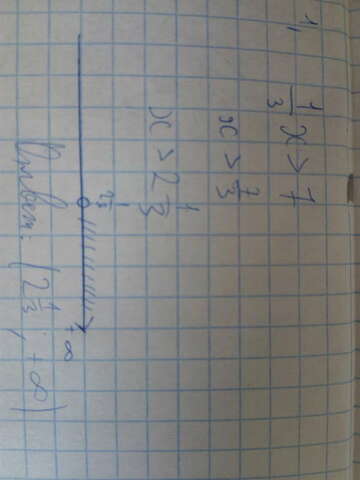 1)
1/3 x > 7
x > 7/3
x > 2 1/3
2 1/3 +∞
Ответ: (2 1/3 ; +∞)